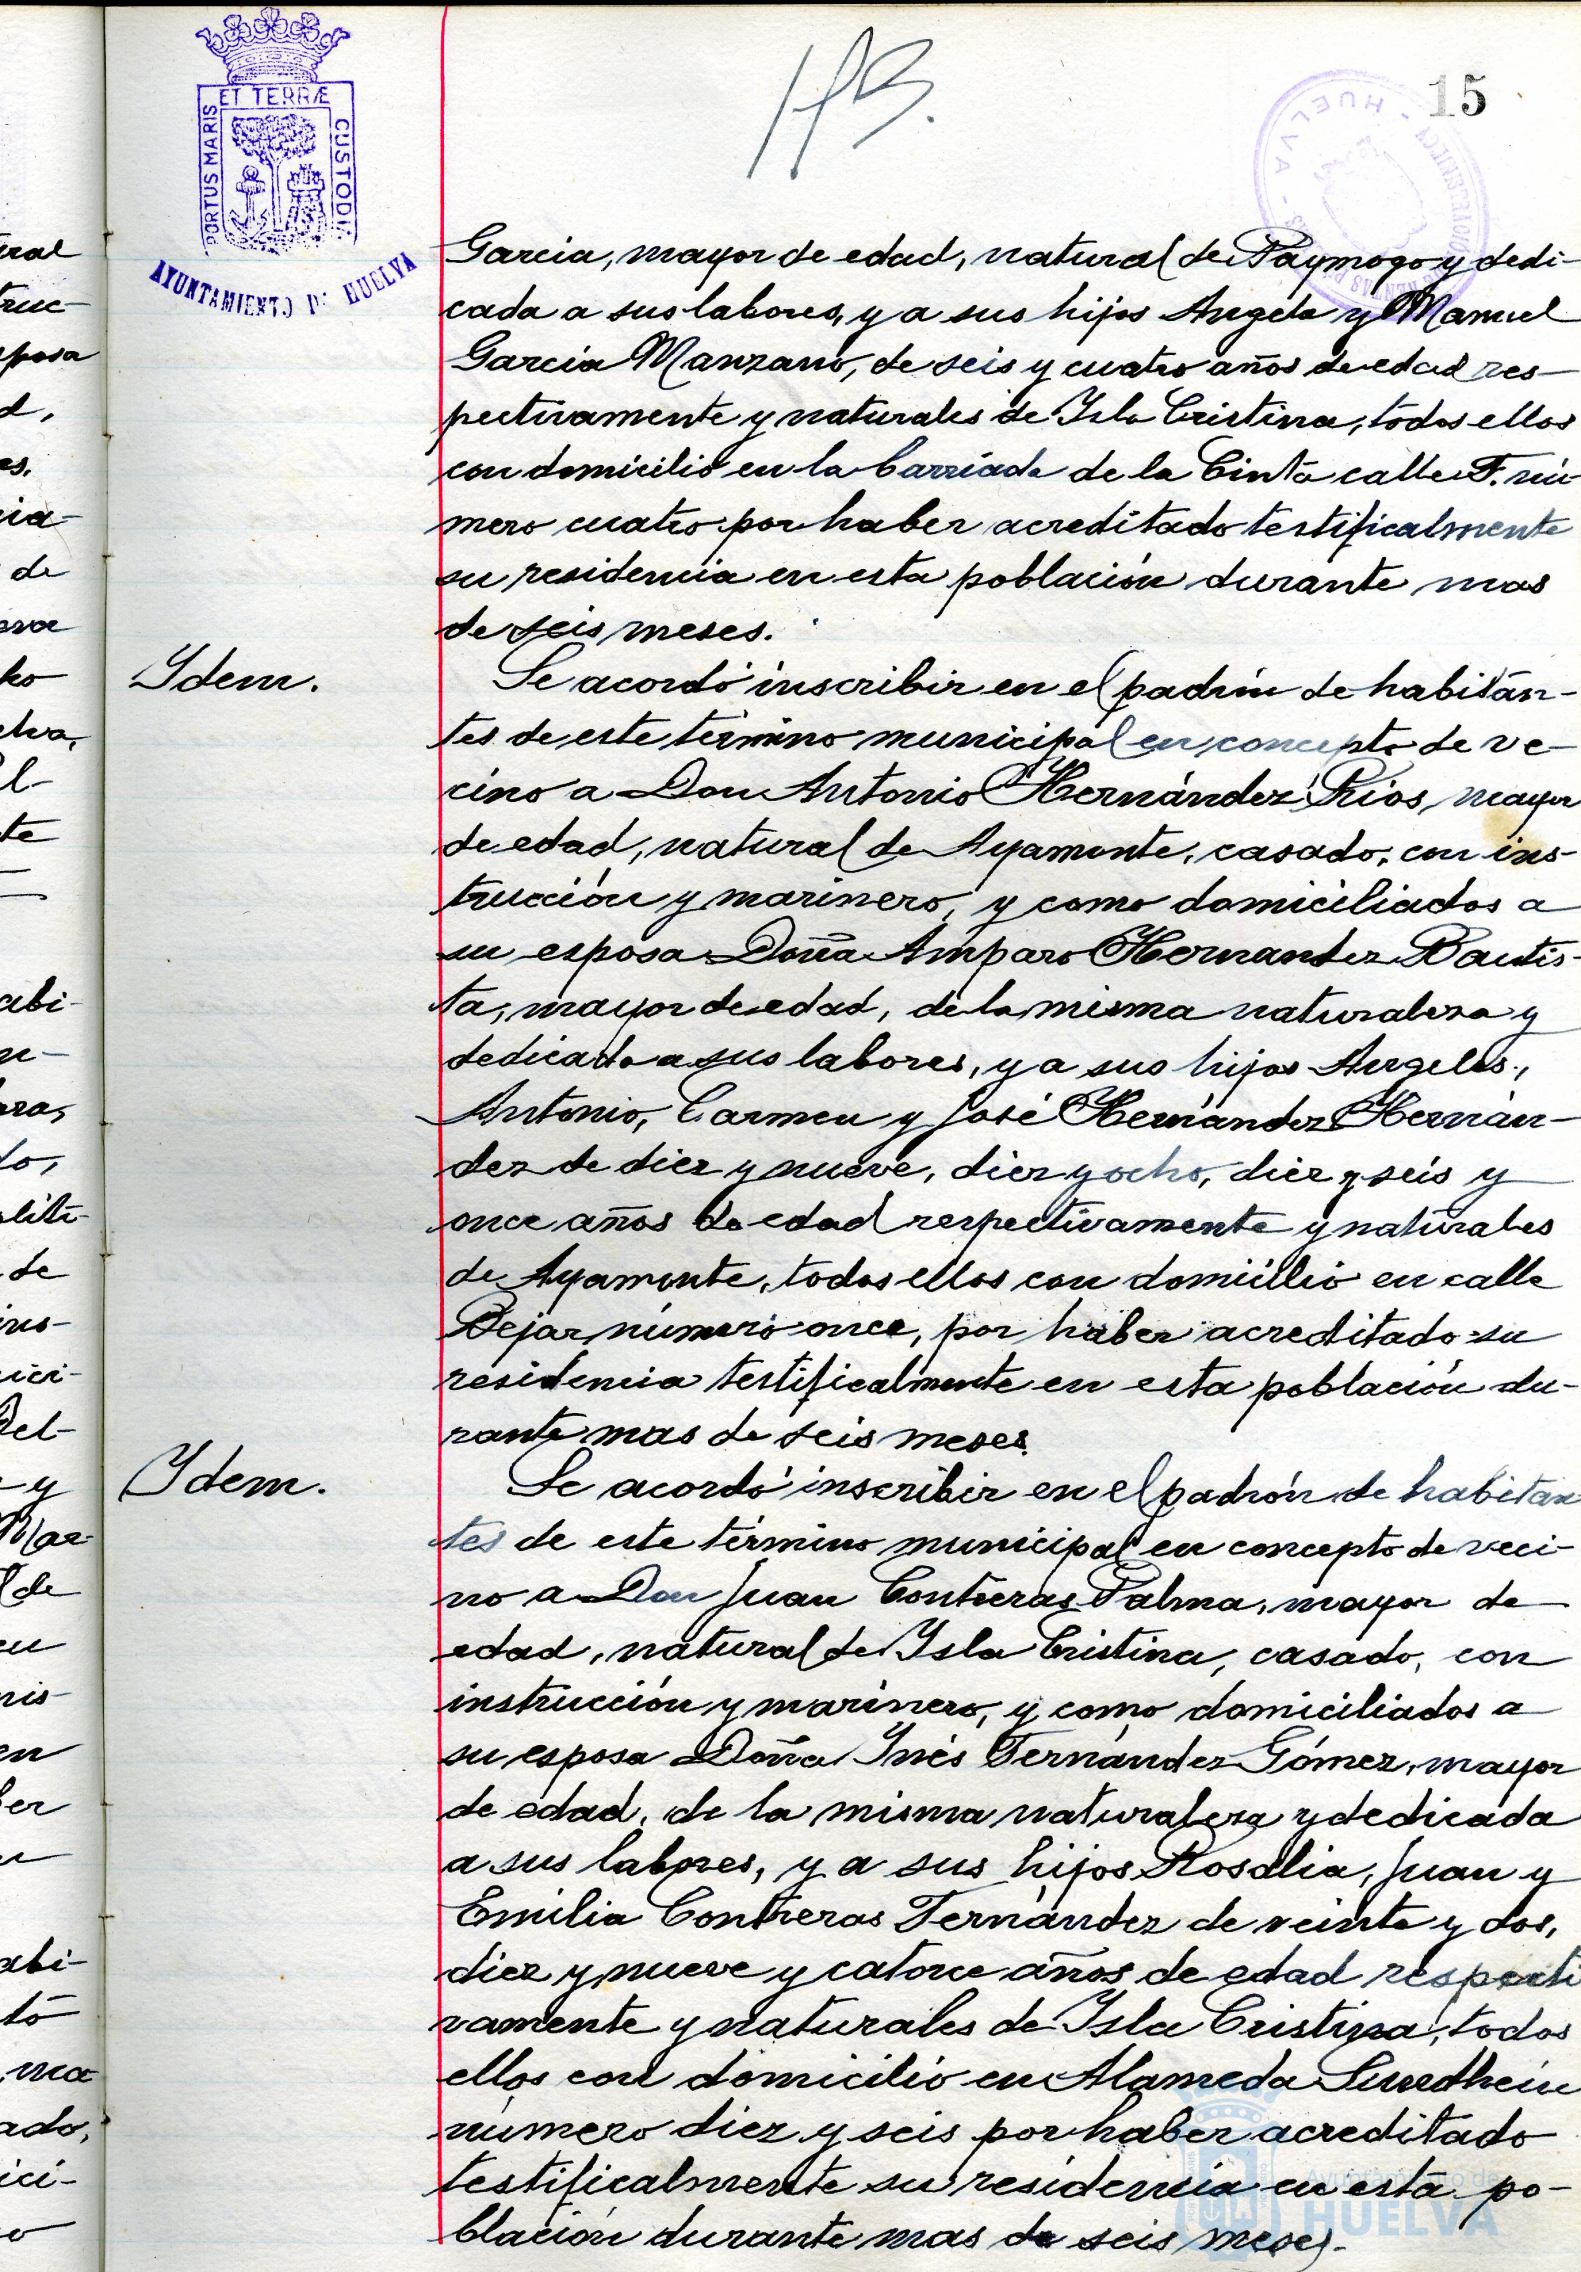 15
PORTUS MARIS ET TERRÆ CUSTODI
AYUNTAMIENTO DE HUELVA
HUELVA
Garcia, mayor de edad, natural de Paymogo y dedi-
cada a sus labores, y a sus hijos Angela y Manuel
Garcia Manzano, de seis y cuatro años de edad res-
pectivamente y naturales de Isla Cristina, todos ellos
con domicilio en la barriada de la Cinta calle F. nú-
mero cuatro por haber acreditado testificalmente
su residencia en esta población durante mas
de seis meses.
Ydem.
Se acordó inscribir en el padrón de habitan-
tes de este término municipal en concepto de ve-
cino a Don Antonio Hernández Ríos, mayor
de edad, natural de Ayamonte, casado, con ins-
trucción y marinero, y como domiciliados a
su esposa Doña Amparo Hernandez Bautis-
ta, mayor de edad, de la misma naturaleza y
dedicada a sus labores, y a sus hijos Angeles,
Antonio, Carmen y José Hernández Hernán-
dez de diez y nueve, diez y ocho, diez y seis y
once años de edad respectivamente y naturales
de Ayamonte, todos ellos con domicilio en calle
Bejar número once, por haber acreditado su
residencia testificalmente en esta población du-
rante mas de seis meses.
Ydem.
Se acordó inscribir en el padrón de habitan
tes de este término municipal en concepto de veci-
no a Don Juan Contreras Palma, mayor de
edad, natural de Isla Cristina, casado, con
instrucción y marinero, y como domiciliados a
su esposa Doña Inés Fernández Gómez, mayor
de edad, de la misma naturaleza y dedicada
a sus labores, y a sus hijos Rosalia, Juan y
Emilia Contreras Fernández de veinte y dos,
diez y nueve y catorce años de edad respecti
vamente y naturales de Isla Cristina, todos
ellos con domicilio en Alameda Sundheim
número diez y seis por haber acreditado
testificalmente su residencia en esta po-
blación durante mas de seis meses.
Ayuntamiento de
HUELVA